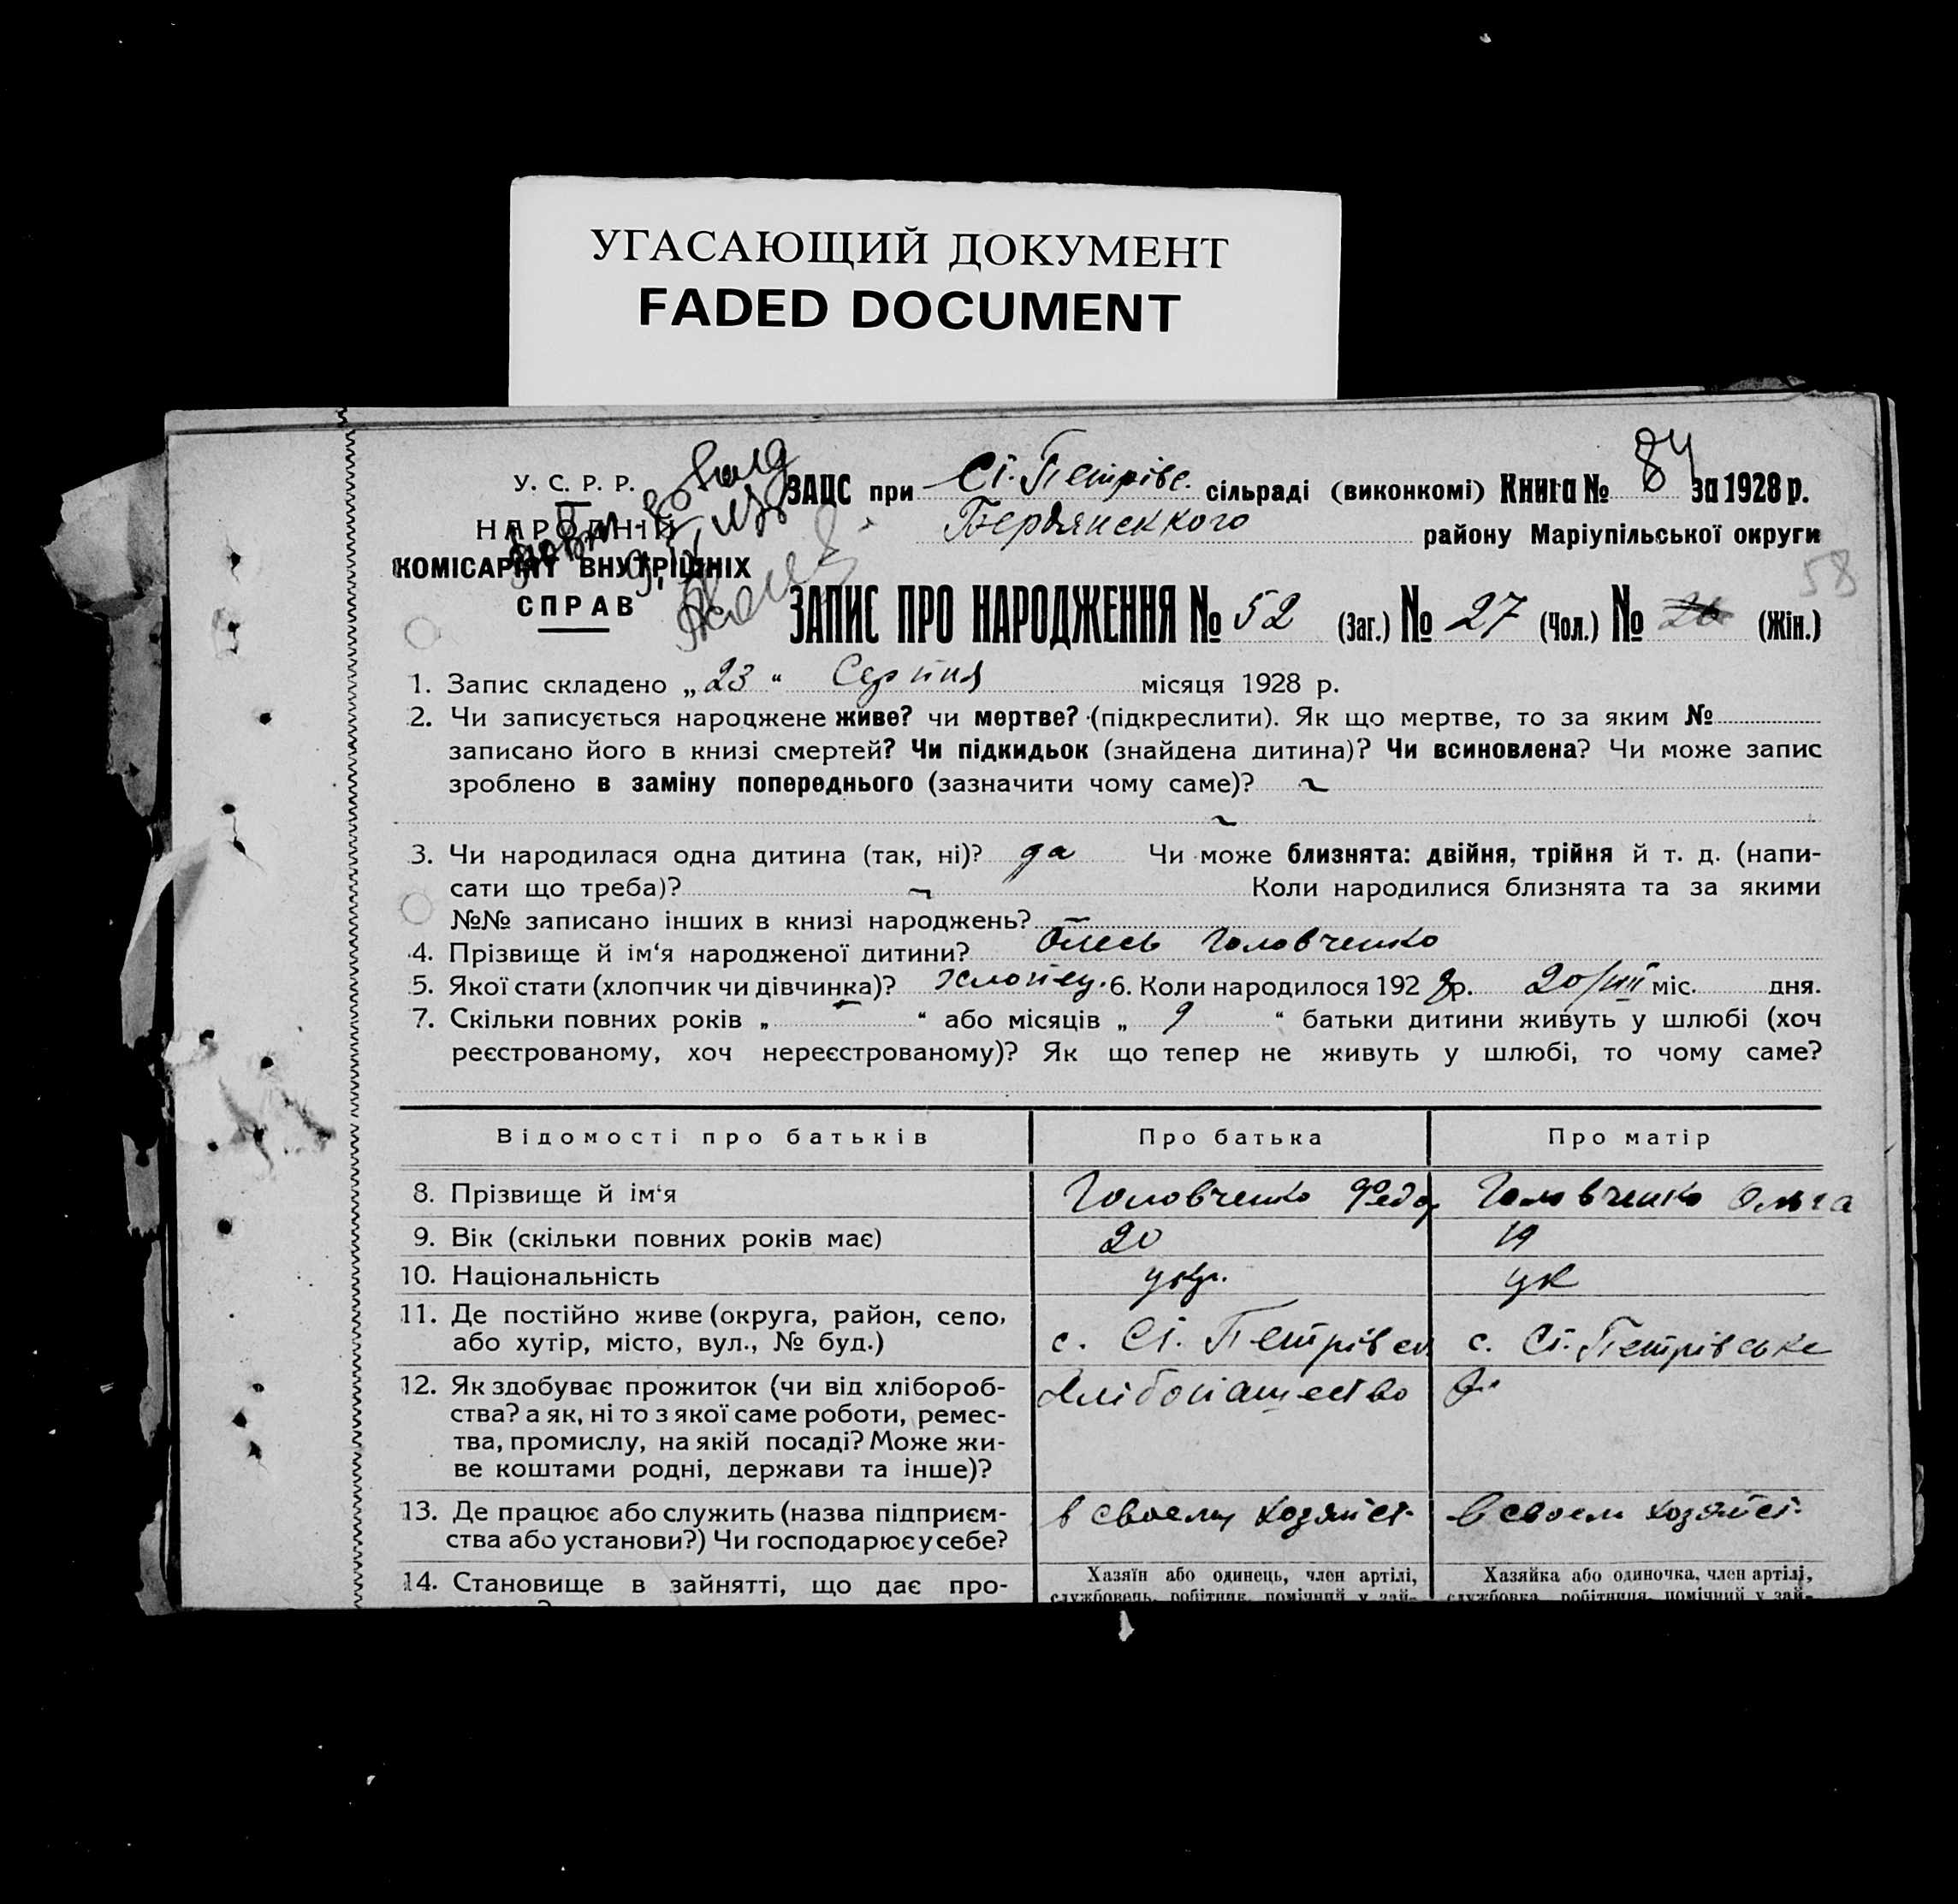 УГАСАЮЩИЙ ДОКУМЕНТ
FADED DOCUMENT
У. С. Р. Р.
НАРОДНІЙ
КОМІСАРІЯТ ВНУТРІШНІХ
СПРАВ
ЗАЦС при Ст. Петрівс. сільраді (виконкомі) Книга № 84 за 1928 р.
Бердянського району Маріупільської округи
58
ЗАПИС ПРО НАРОДЖЕННЯ № 52 (Заг.) № 27 (Чол.) № 26 (Жін.)
1. Запис складено „ 23 “ Серпня місяця 1928 р.
2. Чи записується народжене живе? чи мертве? (підкреслити). Як що мертве, то за яким №
записано його в книзі смертей? Чи підкидьок (знайдена дитина)? Чи всиновлена? Чи може запис
зроблено в заміну попереднього (зазначити чому саме)?
3. Чи народилася одна дитина (так, ні)? да Чи може близнята: двійня, трійня й т. д. (напи-
сати що треба)? Коли народилися близнята та за якими
№№ записано інших в книзі народжень?
4. Прізвище й ім‘я народженої дитини? Олесь Головченко
5. Якої стати (хлопчик чи дівчинка)? Хлопец. 6. Коли народилося 192 8 р. 20/VIII міс. дня.
7. Скільки повних років „ “ або місяців „ 9 “ батьки дитини живуть у шлюбі (хоч
реєстрованому, хоч нереєстрованому)? Як що тепер не живуть у шлюбі, то чому саме?
Відомості про батьків Про батька Про матір
8. Прізвище й ім‘я Головченко Федор Головченко Ольга
9. Вік (скільки повних років має) 20 19
10. Національність укр. ук
11. Де постійно живе (округа, район, село,
або хутір, місто, вул., № буд.) с. Ст. Петрівск с. Ст. Петрівське
12. Як здобуває прожиток (чи від хлібороб- Хлібопашество
ства? а як, ні то з якої саме роботи, ремес-
тва, промислу, на якій посаді? Може жи-
ве коштами родні, держави та інше)?
13. Де працює або служить (назва підприєм- в своем хозяйст. в своем хозяйст.
ства або установи?) Чи господарює у себе?
14. Становище в зайнятті, що дає про- Хазяїн або одинець, член артілі, Хазяйка або одиночка, член артілі,
службовець, робітник, помічний у зай- службовка, робітниця, помічний у зай-